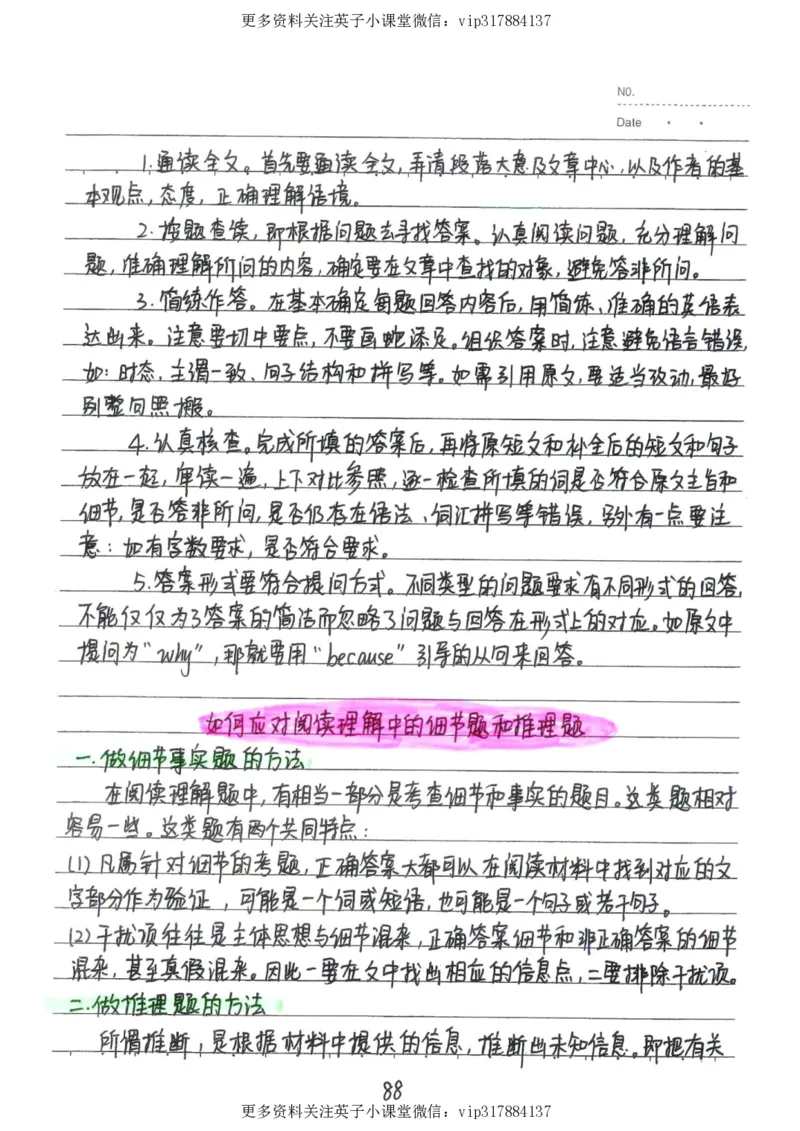 更多资料关注英子小课堂微信：vip317884137
NO.
Date · ·
1.通读全文。首先要通读全文,弄清段落大意及文章中心,以及作者的基
本观点,态度,正确理解语境。
2.按题查读,即根据问题去寻找答案。认真阅读问题,充分理解问
题,准确理解所问的内容,确定要在文章中查找的对象,避免答非所问。
3.简练作答。在基本确定每题回答内容后,用简练、准确的英语表
达出来。注意要切中要点,不要画蛇添足。组织答案时,注意避免语言错误,
如:时态、主谓一致、句子结构和拼写等。如需引用原文,要适当改动,最好
别整句照搬。
4.认真核查。完成所填的答案后,再将原短文和补全后的短文和句子
放在一起,审读一遍,上下对比参照,逐一检查所填的词是否符合原文主旨和
细节,是否答非所问,是否仍存在语法、词汇拼写等错误,另外有一点要注
意:如有字数要求,是否符合要求。
5.答案形式要符合提问方式。不同类型的问题要求有不同形式的回答,
不能仅仅为了答案的简洁而忽略了问题与回答在形式上的对应。如原文中
提问为“why”,那就要用“because”引导的从句来回答。
如何应对阅读理解中的细节题和推理题
一.做细节事实题的方法
在阅读理解题中,有相当一部分是考查细节和事实的题目。这类题相对
容易一些。这类题有两个共同特点:
(1)凡属针对细节的考题,正确答案大都可以在阅读材料中找到对应的文
字部分作为验证,可能是一个词或短语,也可能是一个句子或若干句子。
(2)干扰项往往是主体思想与细节混杂,正确答案细节和非正确答案的细节
混杂,甚至真假混杂。因此一要在文中找出相应的信息点,二要排除干扰项。
二.做推理题的方法
所谓推断,是根据材料中提供的信息,推断出未知信息。即把有关
88
更多资料关注英子小课堂微信：vip317884137